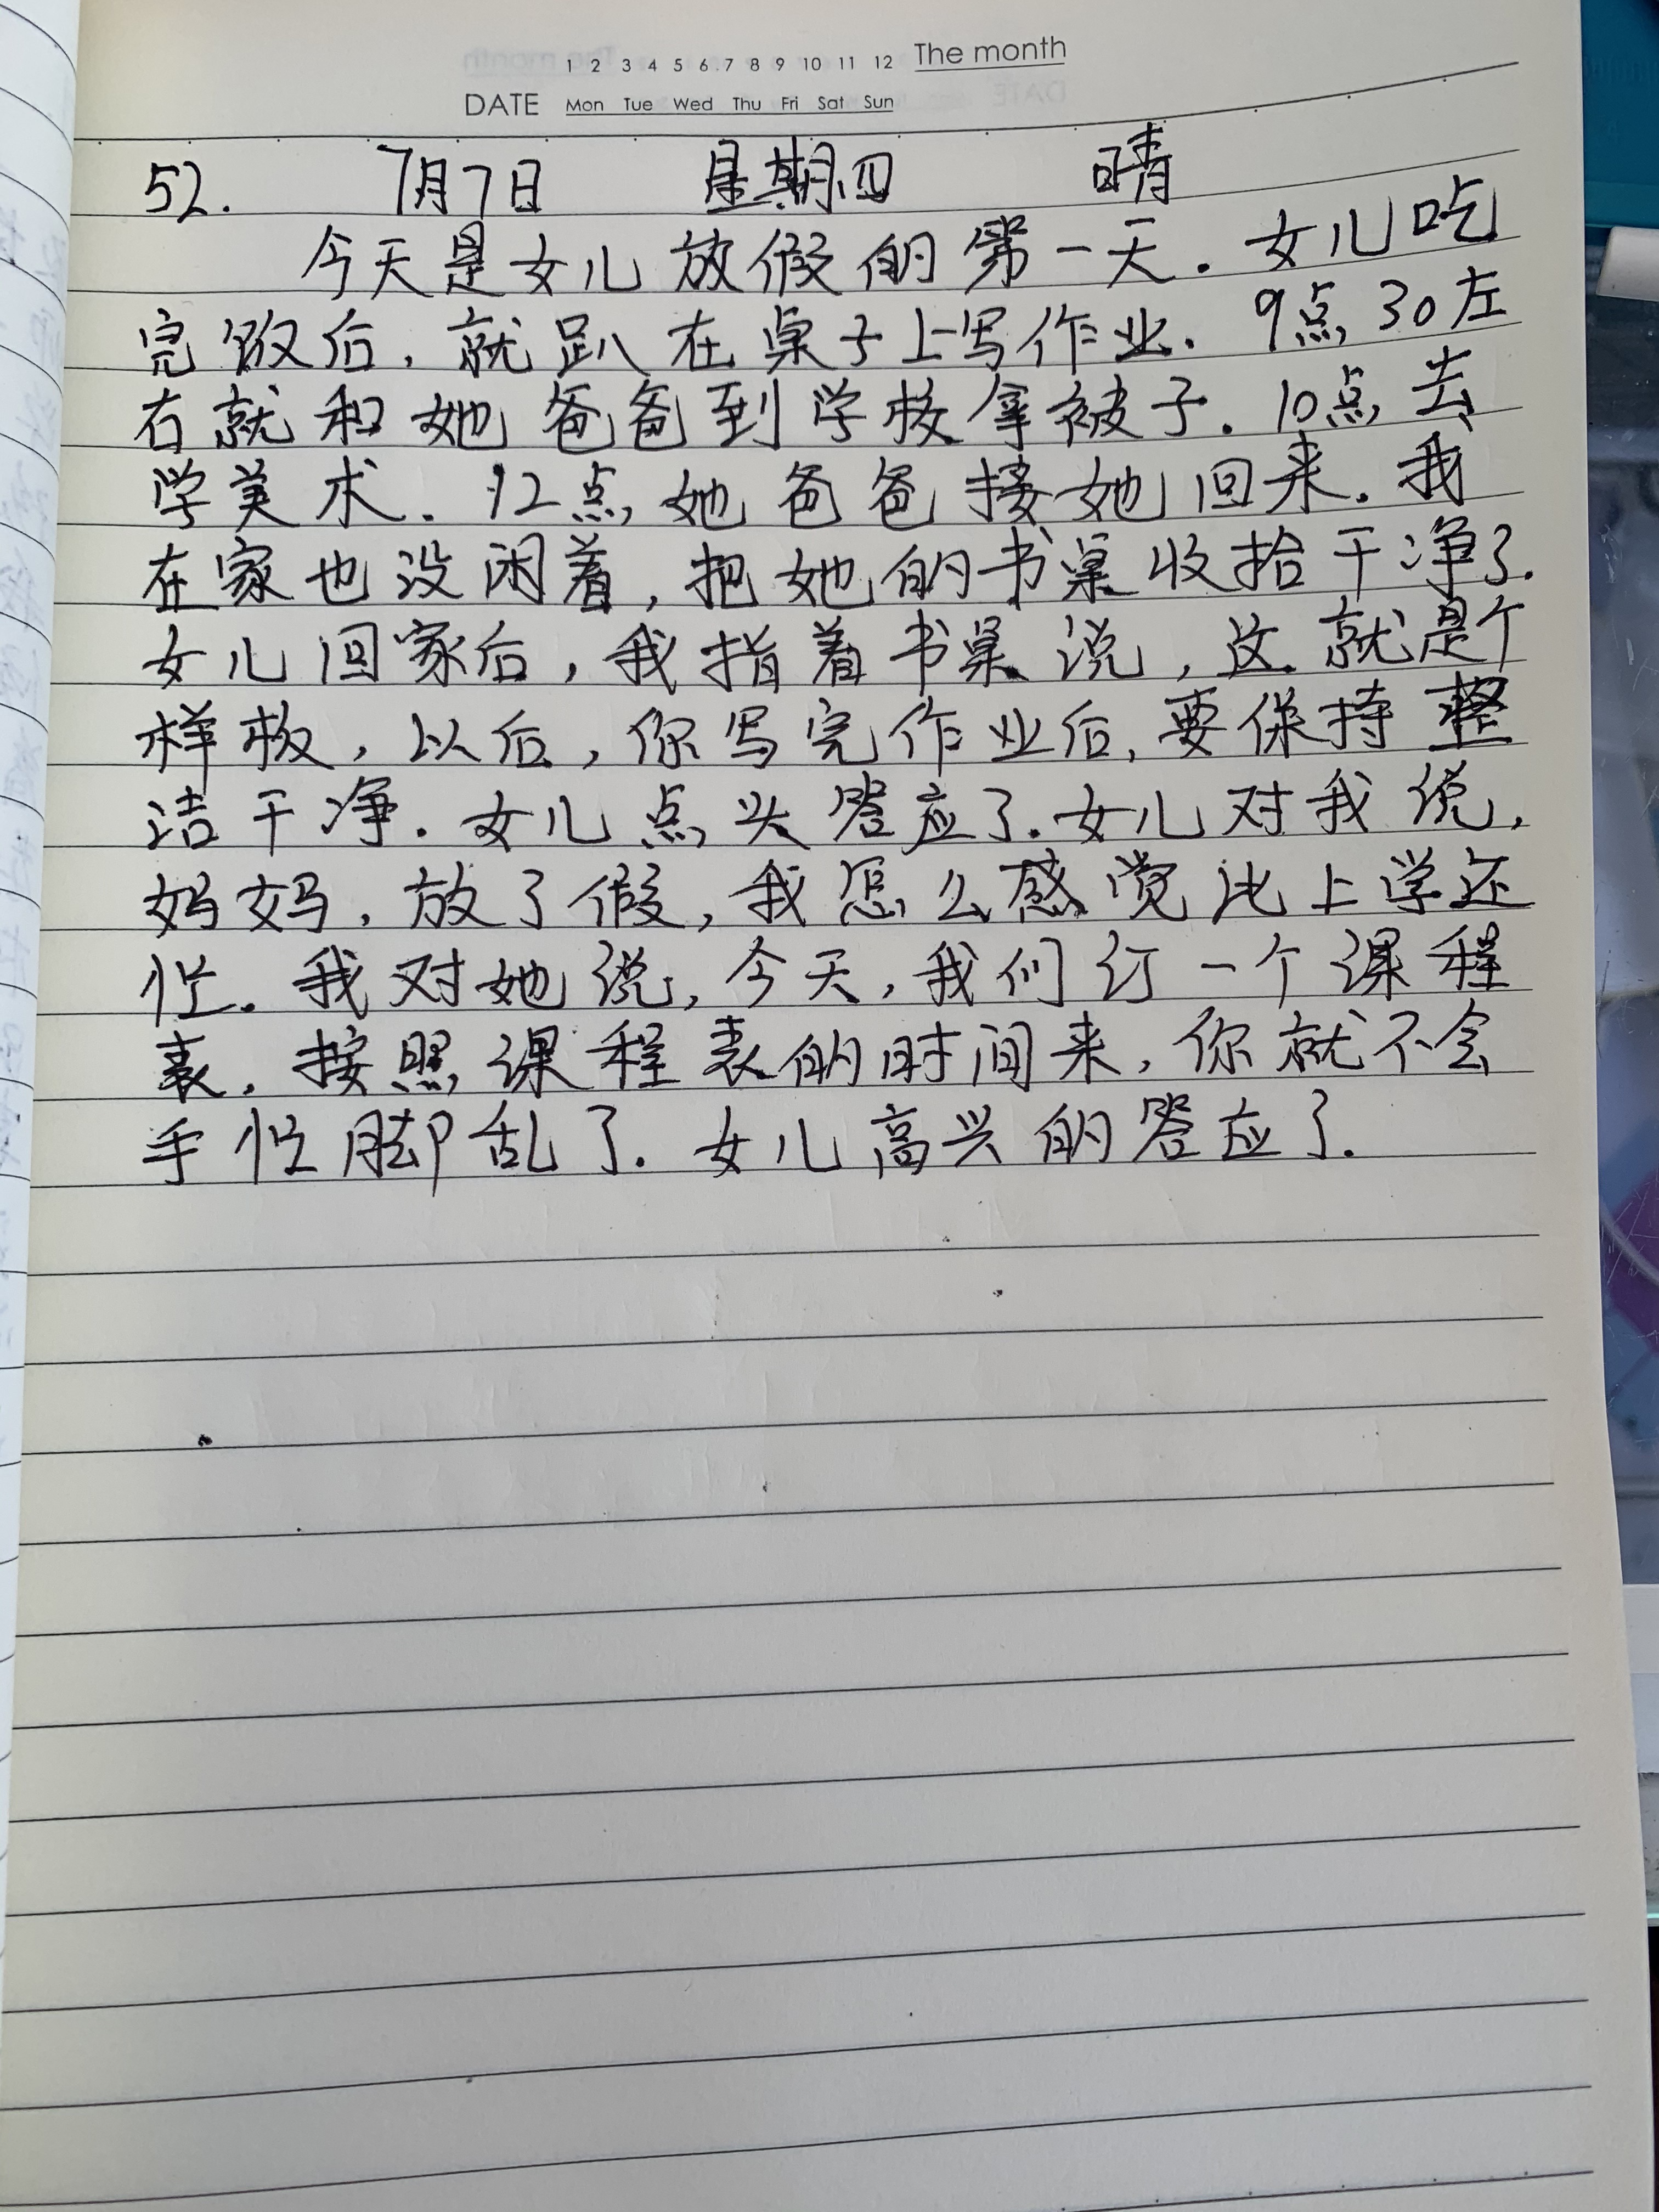 1 2 3 4 5 6 7 8 9 10 11 12 The month
DATE Mon Tue Wed Thu Fri Sat Sun
52. 7月7日 星期四 晴
今天是女儿放假的第一天.女儿吃
完饭后,就趴在桌子上写作业.9点30左
右就和她爸爸到学校拿被子.10点去
学美术.12点她爸爸接她回来.我
在家也没闲着,把她的书桌收拾干净了.
女儿回家后,我指着书桌说,这就是个
样板,以后,你写完作业后,要保持整
洁干净.女儿点头答应了.女儿对我说,
妈妈,放了假,我怎么感觉比上学还
忙.我对她说,今天,我们订一个课程
表,按照课程表的时间来,你就不会
手忙脚乱了.女儿高兴的答应了.